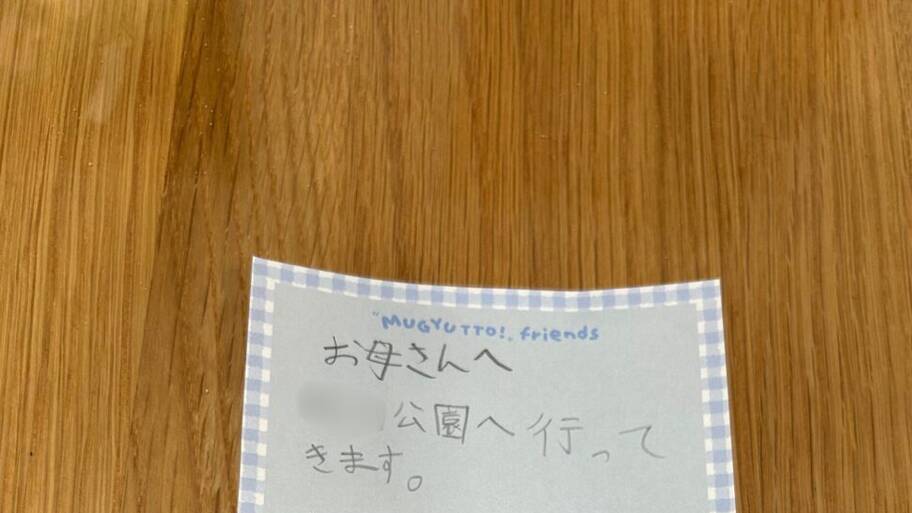 "MUGYUTTO!, friends
お母さんへ
公園へ行って
きます。